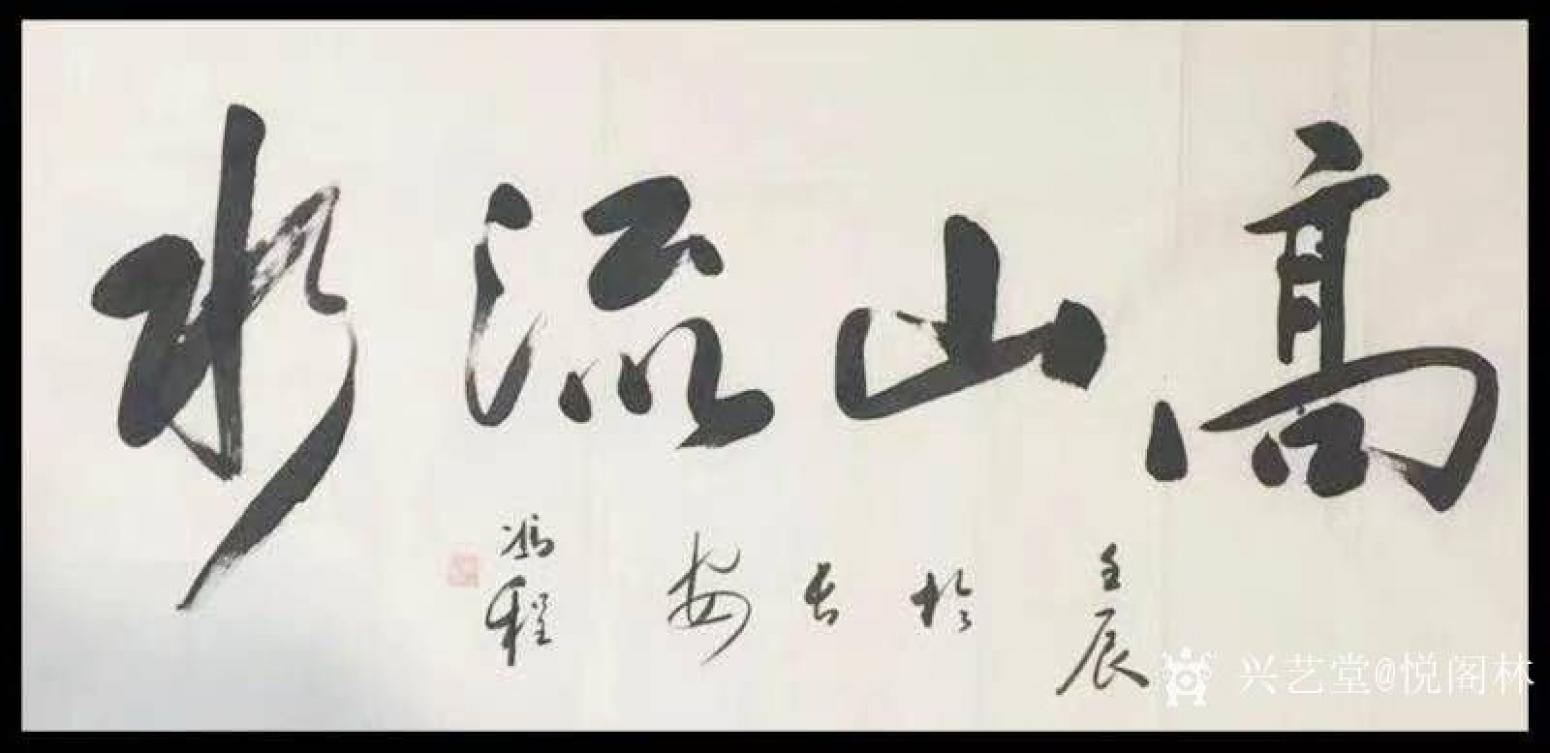 高山流水
壬辰於長安
馮程
兴艺堂@悦阁林